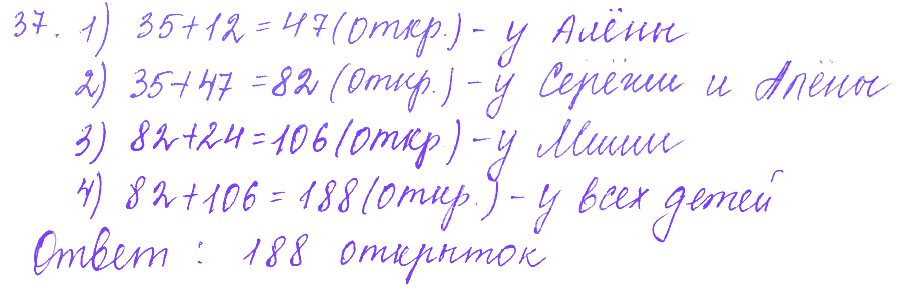 37. 1) 35+12=47(откр.)-у Алёны
2) 35+47=82(откр.)-у Серёжи и Алёны
3) 82+24=106(откр)-у Миши
4) 82+106=188(откр.)-у всех детей
Ответ: 188 открыток